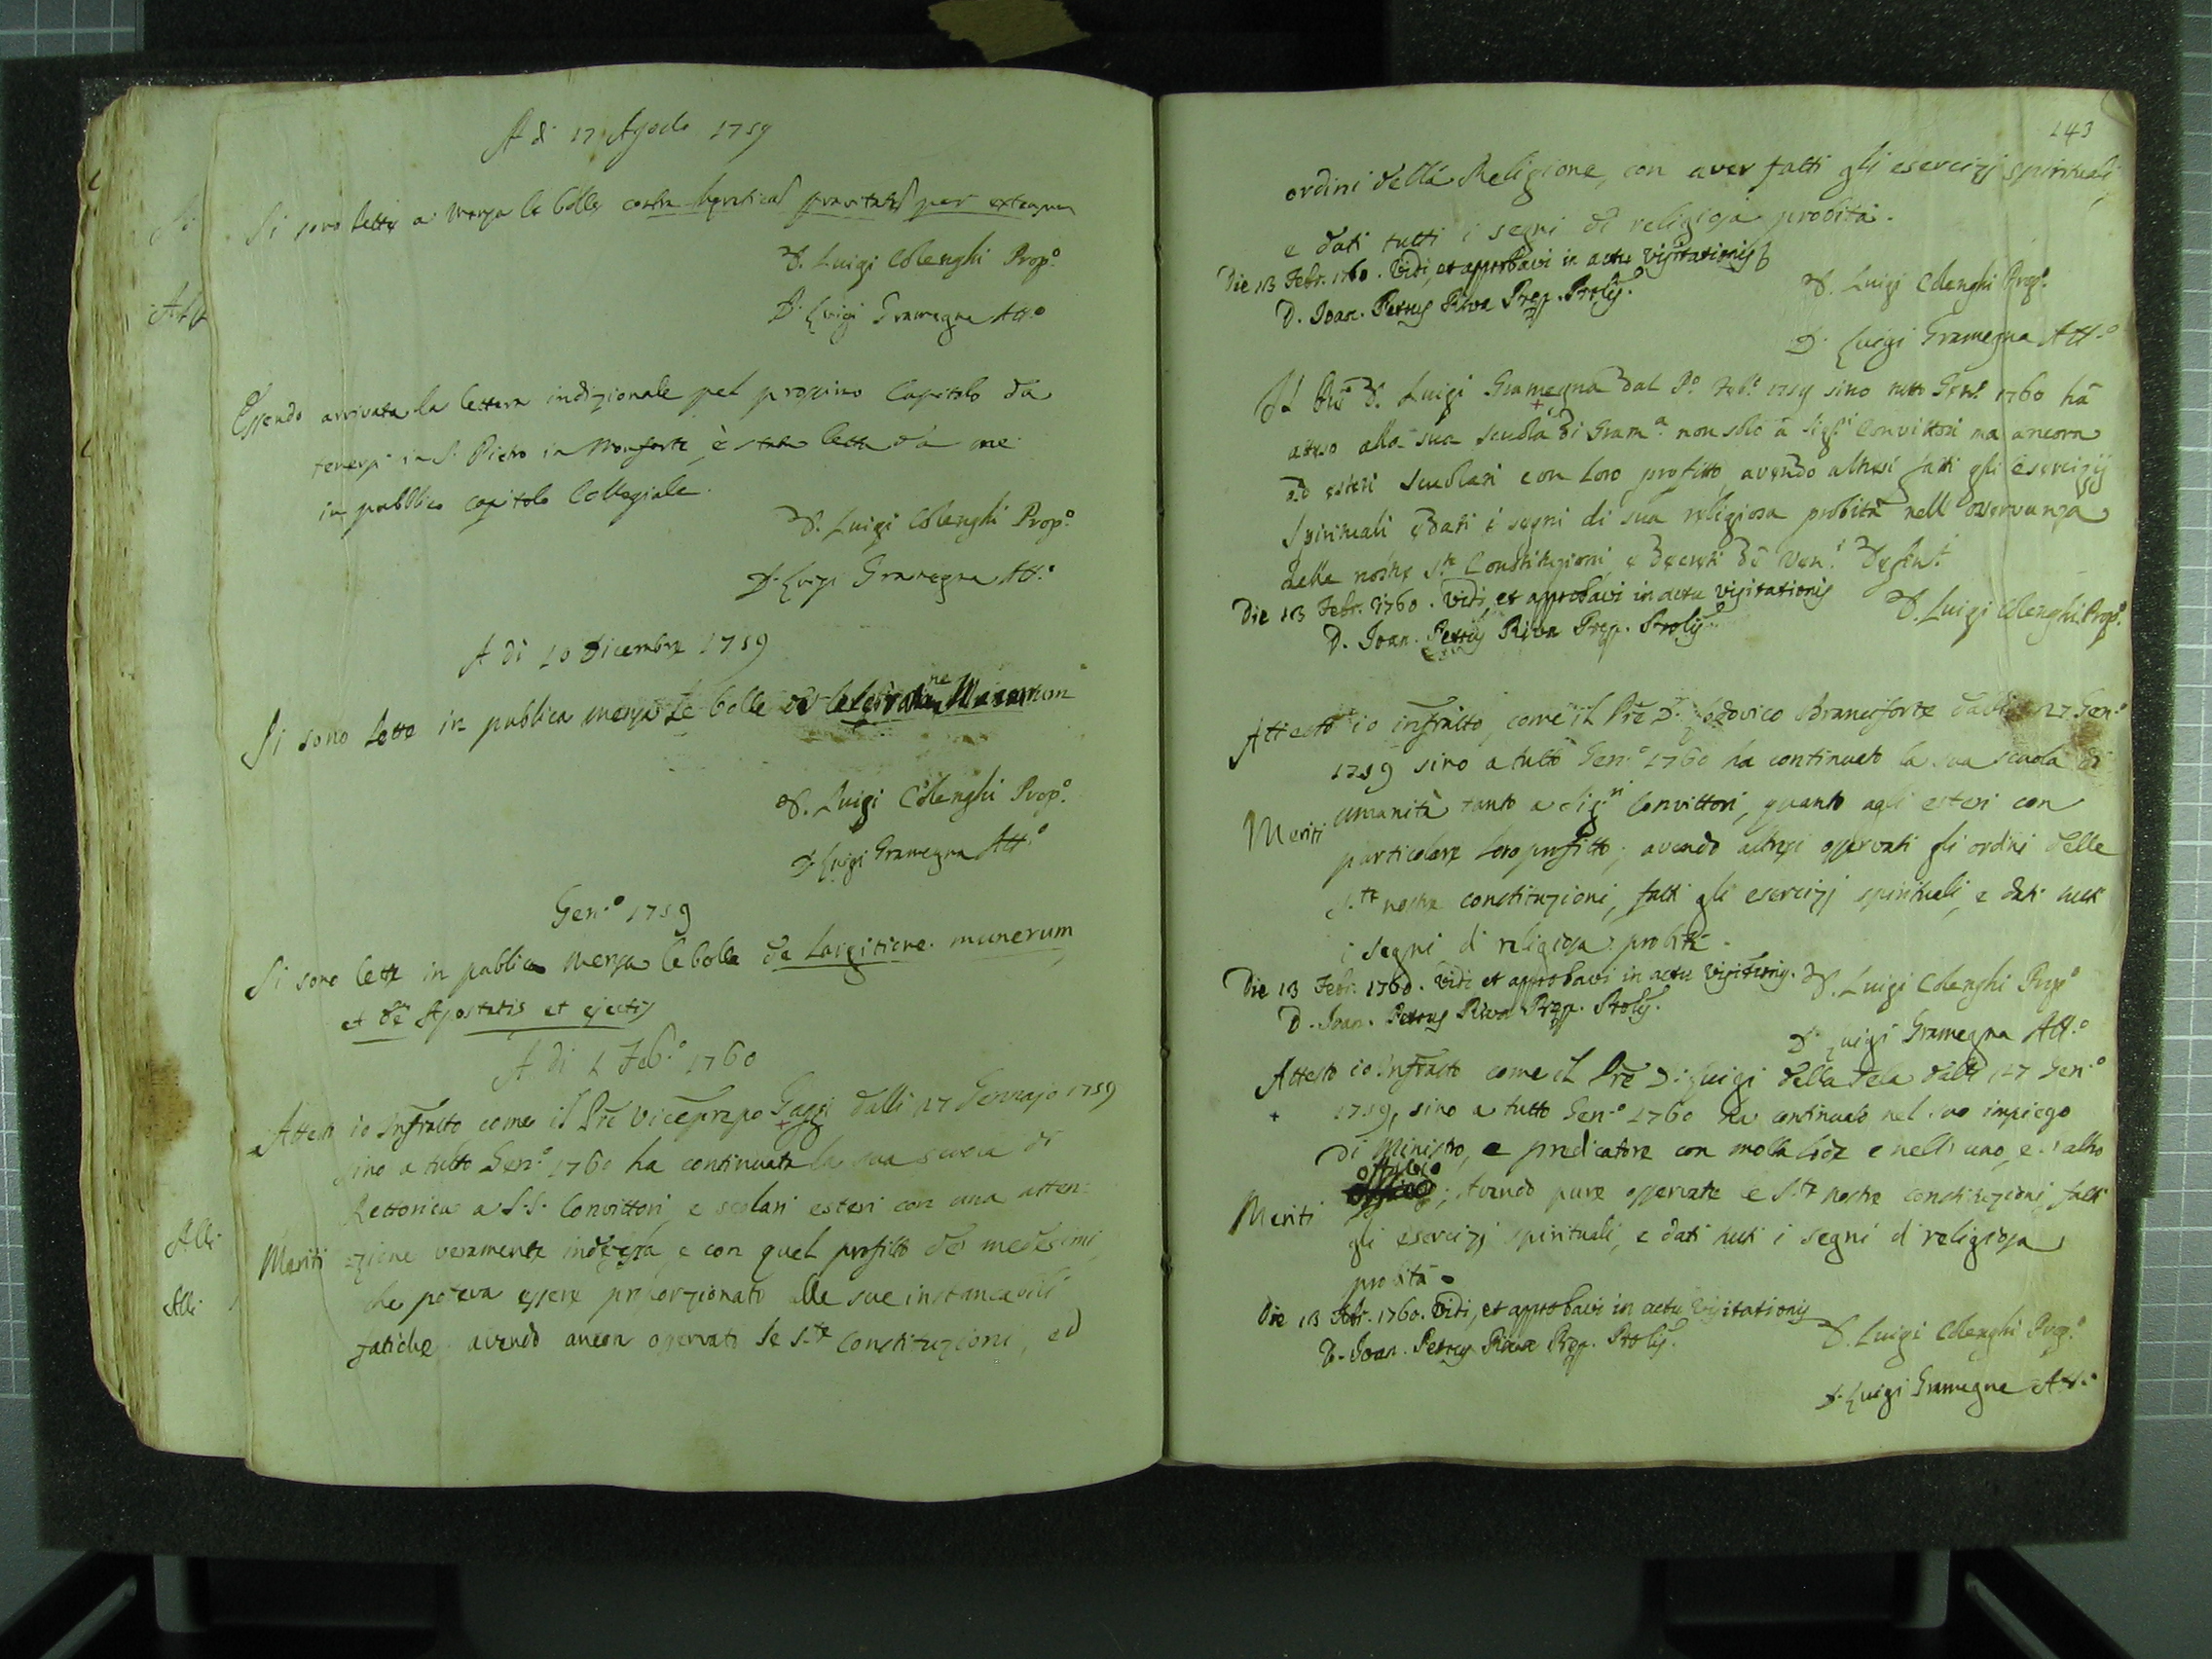 A dì 17 Agosto 1759
Si sono lette a mensa le bolle contra hereticas pravitates per extensum
D. Luigi Colenghi Prop.o
D. Luigi Gramegna Att.o
Essendo arrivata la lettera indizionale pel prossimo Capitolo da
tenersi in S. Pietro in Monforte, è stata letta da me
in pubblico capitolo Collegiale.
D. Luigi Colenghi Prop.o
D. Luigi Gramegna Att.o
A dì 10 Dicembre 1759
Si sono lette in publica mensa le bolle de celebratione Missarum
D. Luigi Colenghi Prop.o
D. Luigi Gramegna Att.o
Gen.o 1759
Si sono lette in publica mensa le bolle de Largitione munerum,
et de Apostatis et ejectis
A dì 1 Feb.o 1760
Attesto io infratto come il Pre Viceprepo Gaggi dalli 27 Gennajo 1759
sino a tutto Gen.o 1760 ha continuata la sua scuola di
Rettorica a S.S. Convittori, e scolari esteri con una atten=
Meriti =zione veramente indefessa, e con quel profitto de' medesimi,
che poteva essere proporzionato alle sue instancabili
fatiche, avendo ancora osservato le S.te Constituzioni, ed
143
ordini della Religione, con aver fatti gli esercizj spirituali,
e dati tutti i segni di religiosa probità.
Die 13 Febr. 1760. Vidi, et approbavi in actu visitationis
D. Joan. Petrus Riva Prep. Prolis.
D. Luigi Colenghi Prop.o
D. Luigi Gramegna Att.o
Il Pre D. Luigi Gramegna dal P.o Feb.o 1759 sino tutto Gen.o 1760 hà
atteso alla sua scuola di Gram.a non solo a Sig.ri Convittori ma ancora
ad esteri scuolari con loro profitto, avendo altresì fatti gli esercizij
Spirituali e dati i segni di sua religiosa probità nell'osservanza
delle nostre S.te Constituzioni, e decreti de Ven.i Defin.i
Die 13 Febr. 1760. Vidi, et approbavi in actu visitationis
D. Luigi Colenghi Prop.o
D. Joan. Petrus Riva Prep. Prolis.
Attesto io infratto, come il Pre D. Lodovico Branciforte dalli 27 Gen.o
1759 sino a tutto Gen.o 1760 ha continuato la sua scuola di
Meriti umanità tanto a Sig.ri Convittori, quanto agli esteri con
particolare loro profitto; avendo altresì osservati gli ordini delle
S.te nostre constituzioni, fatti gli esercizj spirituali, e dati tutti
i segni di religiosa probità.
Die 13 Febr. 1760. Vidi et approbavi in actu visitationis.
D. Luigi Colenghi Prop.o
D. Joan. Petrus Riva Prep. Prolis.
D. Luigi Gramegna Att.o
Attesto io infratto come il Pre D. Luigi della Tela dalli 27 Gen.o
1759, sino a tutto Gen.o 1760 ha continuato nel suo impiego
di Ministro, e predicatore con molta lode e nell'uno, e l'altro
Meriti offizio; Avendo pure osservate le S.te nostre constituzioni, fatti
gli esercizj spirituali, e dati tutti i segni di religiosa
probità.
Die 13 Febr. 1760. Vidi, et approbavi in actu visitationis
D. Luigi Colenghi Prop.o
D. Joan. Petrus Riva Prep. Prolis.
D. Luigi Gramegna Att.o